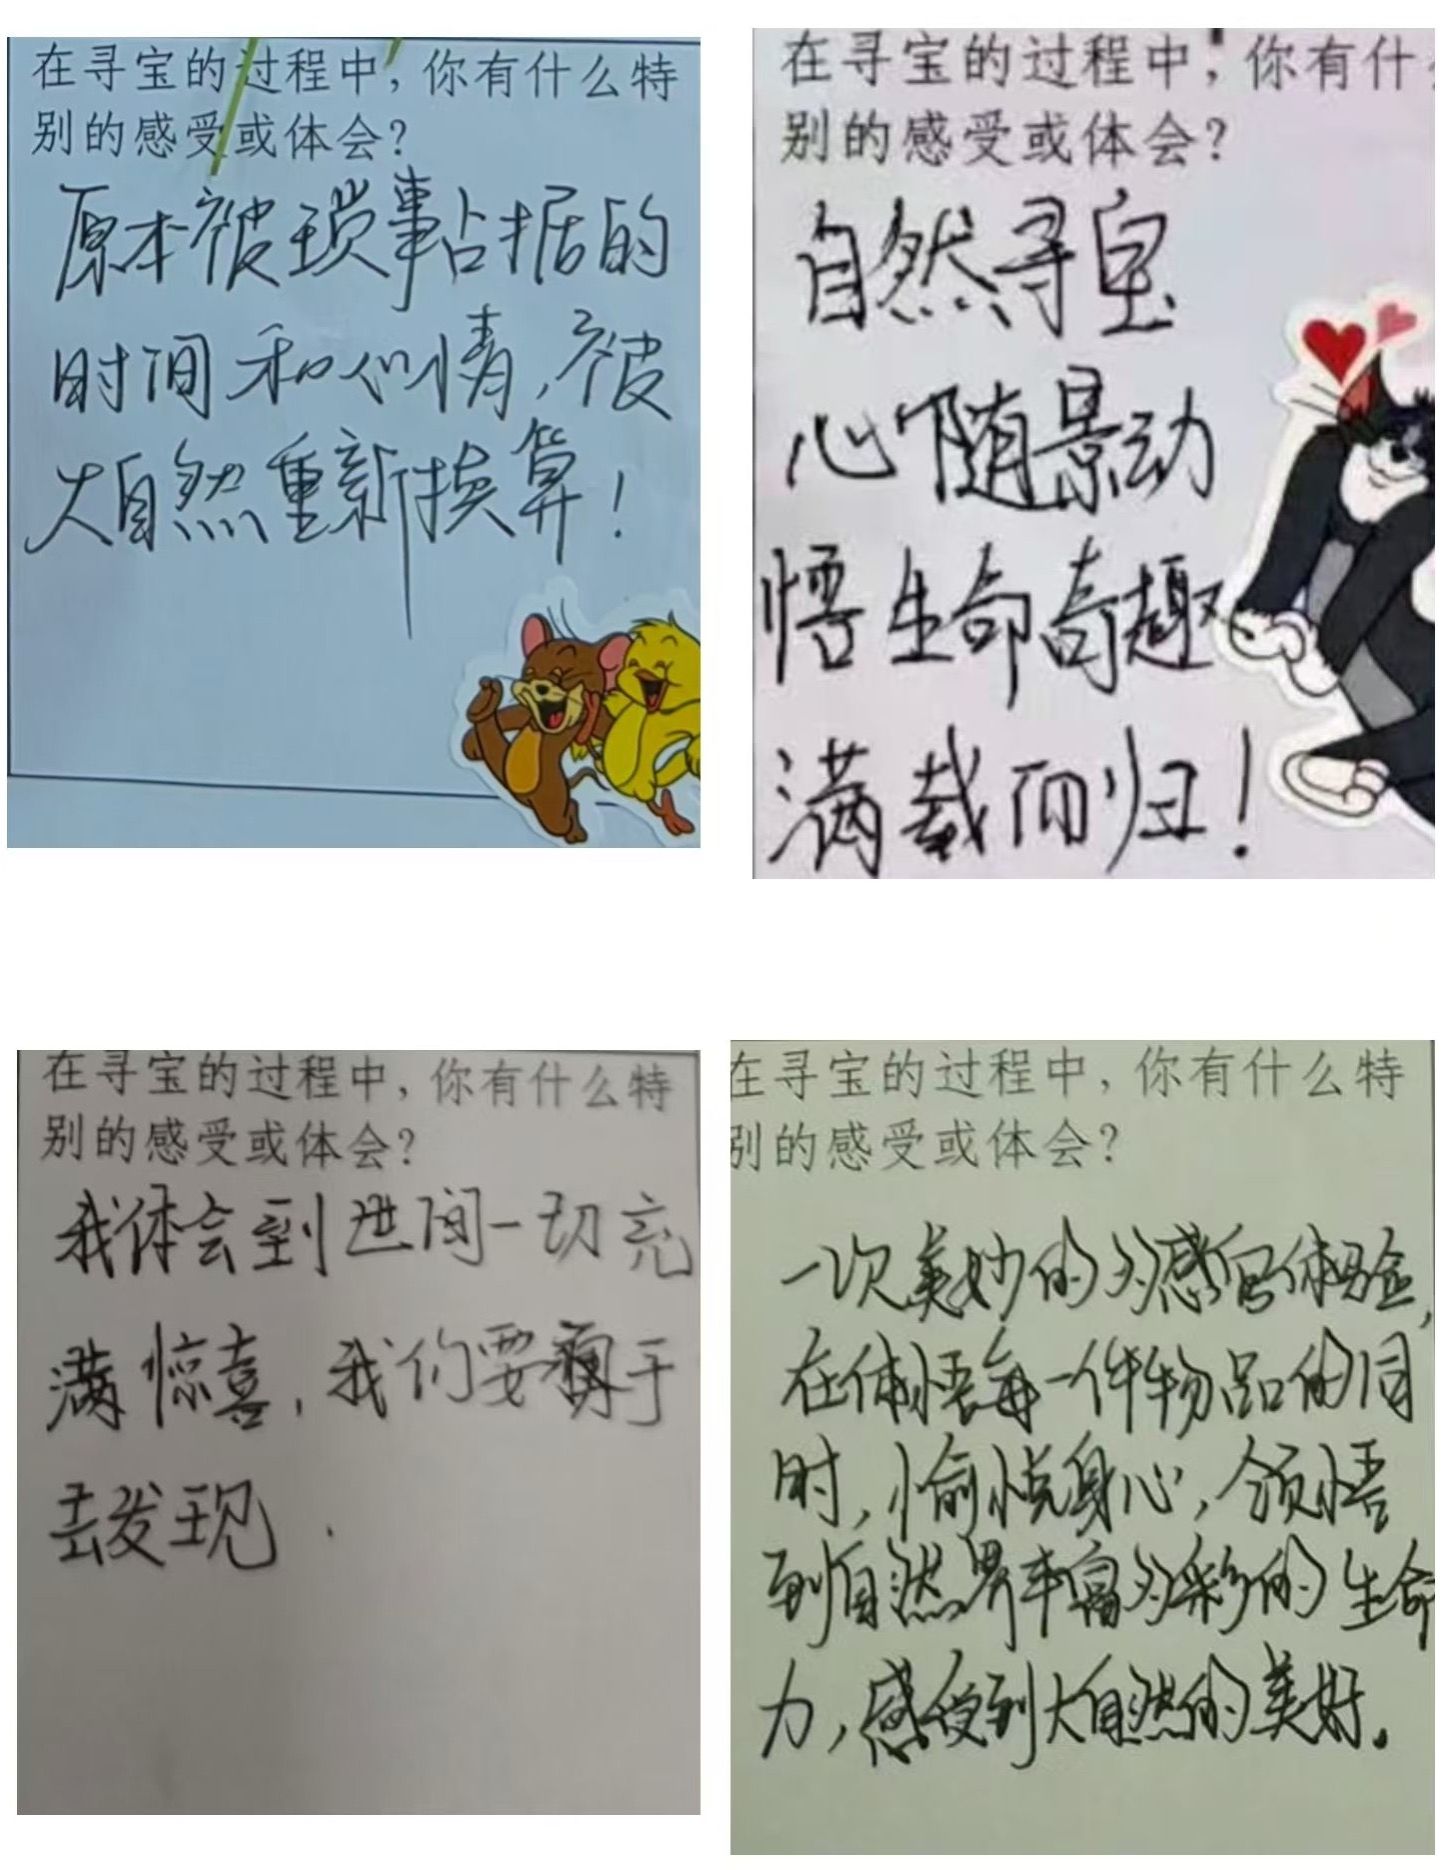 在寻宝的过程中，你有什么特
别的感受或体会？
原本被琐事占据的
时间和心情，被
大自然重新换算！
在寻宝的过程中，你有什
别的感受或体会？
自然寻宝
心随景动
悟生命奇趣
满载而归！
在寻宝的过程中，你有什么特
别的感受或体会？
我体会到世间一切充
满惊喜，我们要勇于
去发现．
在寻宝的过程中，你有什么特
别的感受或体会？
一次美妙的多感官体验，
在体悟每一件物品的同
时，愉悦身心，领悟
到自然界丰富多彩的生命
力，感受到大自然的美好。